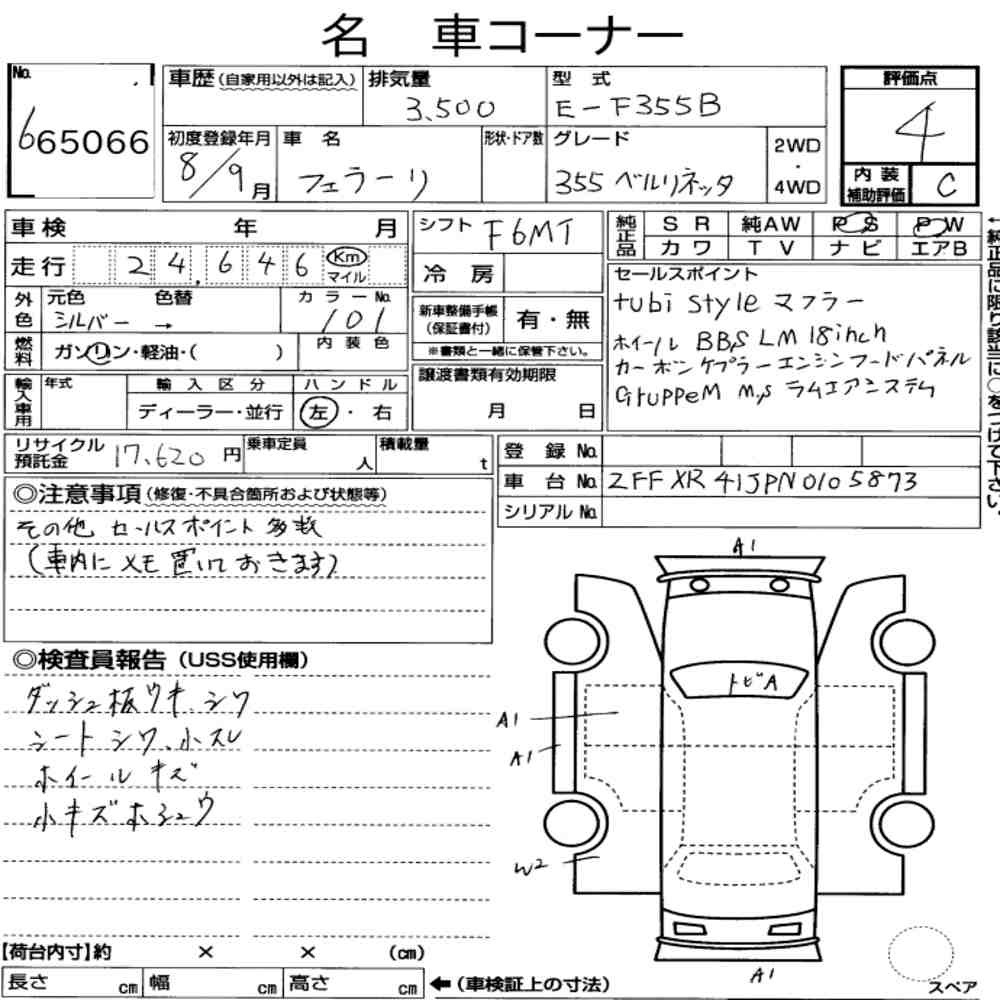 名 車コーナー
No. 665066
車歴 (自家用以外は記入)
排気量 3,500
型 式 E-F355B
評価点 4
初度登録年月 8/9月
車 名 フェラーリ
形状・ドア数
グレード 355 ベルリネッタ
2WD・4WD
内 装 補助評価 C
車検 年 月
走行 24,646 Km マイル
外色 元色 シルバー 色替 →
カラーNo. 101
燃料 ガソリン・軽油・( )
内 装 色
輸入車用 年式
輸 入 区 分 ディーラー・並行
ハ ン ド ル 左・右
シフト F6MT
冷 房
新車整備手帳 (保証書付) 有・無
※書類と一緒に保管下さい。
譲渡書類有効期限
月 日
純正品 S R 純AW P S P W
カ ワ T V ナ ビ エアB
←純正品に限り該当に○をつけて下さい。
セールスポイント
tubi style マフラー
ホイール BBS LM 18inch
カーボンケブラーエンジンフードパネル
GruppeM M,s ラムエアシステム
リサイクル預託金 17,620 円
乗車定員 人
積載量 t
登 録 No.
車 台 No. ZFFXR41JPN0105873
シリアル No.
◎注意事項 (修復・不具合箇所および状態等)
その他 セールスポイント多数
(車内にメモ置いておきます)
◎検査員報告 (USS使用欄)
ダッシュ板ウキ、シワ
シート シワ、小スレ
ホイール キズ
小キズホシュウ
A1
トビA
A1
A1
W2
A1
スペア
【荷台内寸】約 × × (cm)
長さ cm 幅 cm 高さ cm
←(車検証上の寸法)